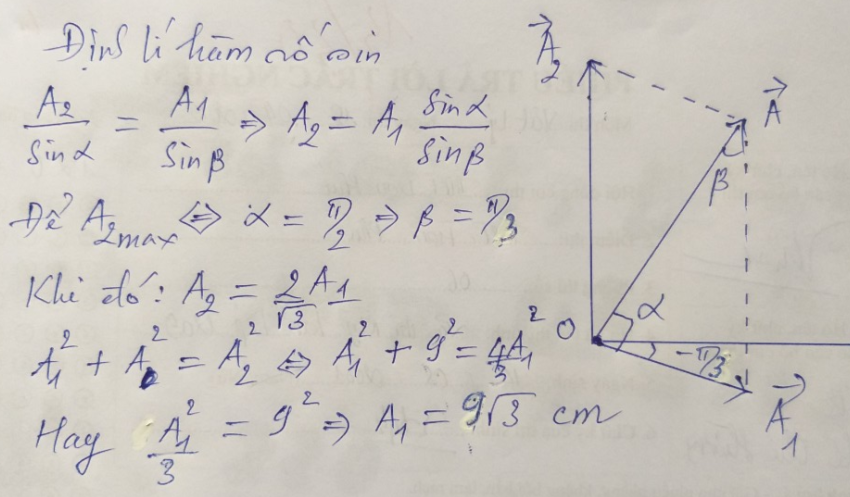 Định lí hàm số sin
A₂/sinα = A₁/sinβ ⇒ A₂ = A₁ sinα/sinβ
Để A₂max ⇔ α = π/2 ⇒ β = π/3
Khi đó: A₂ = 2A₁/√3
A₁² + A² = A₂² ⇔ A₁² + 9² = 4/3 A₁²
Hay A₁²/3 = 9² ⇒ A₁ = 9√3 cm
A⃗₂
A⃗
β
α
O
-π/3
A⃗₁